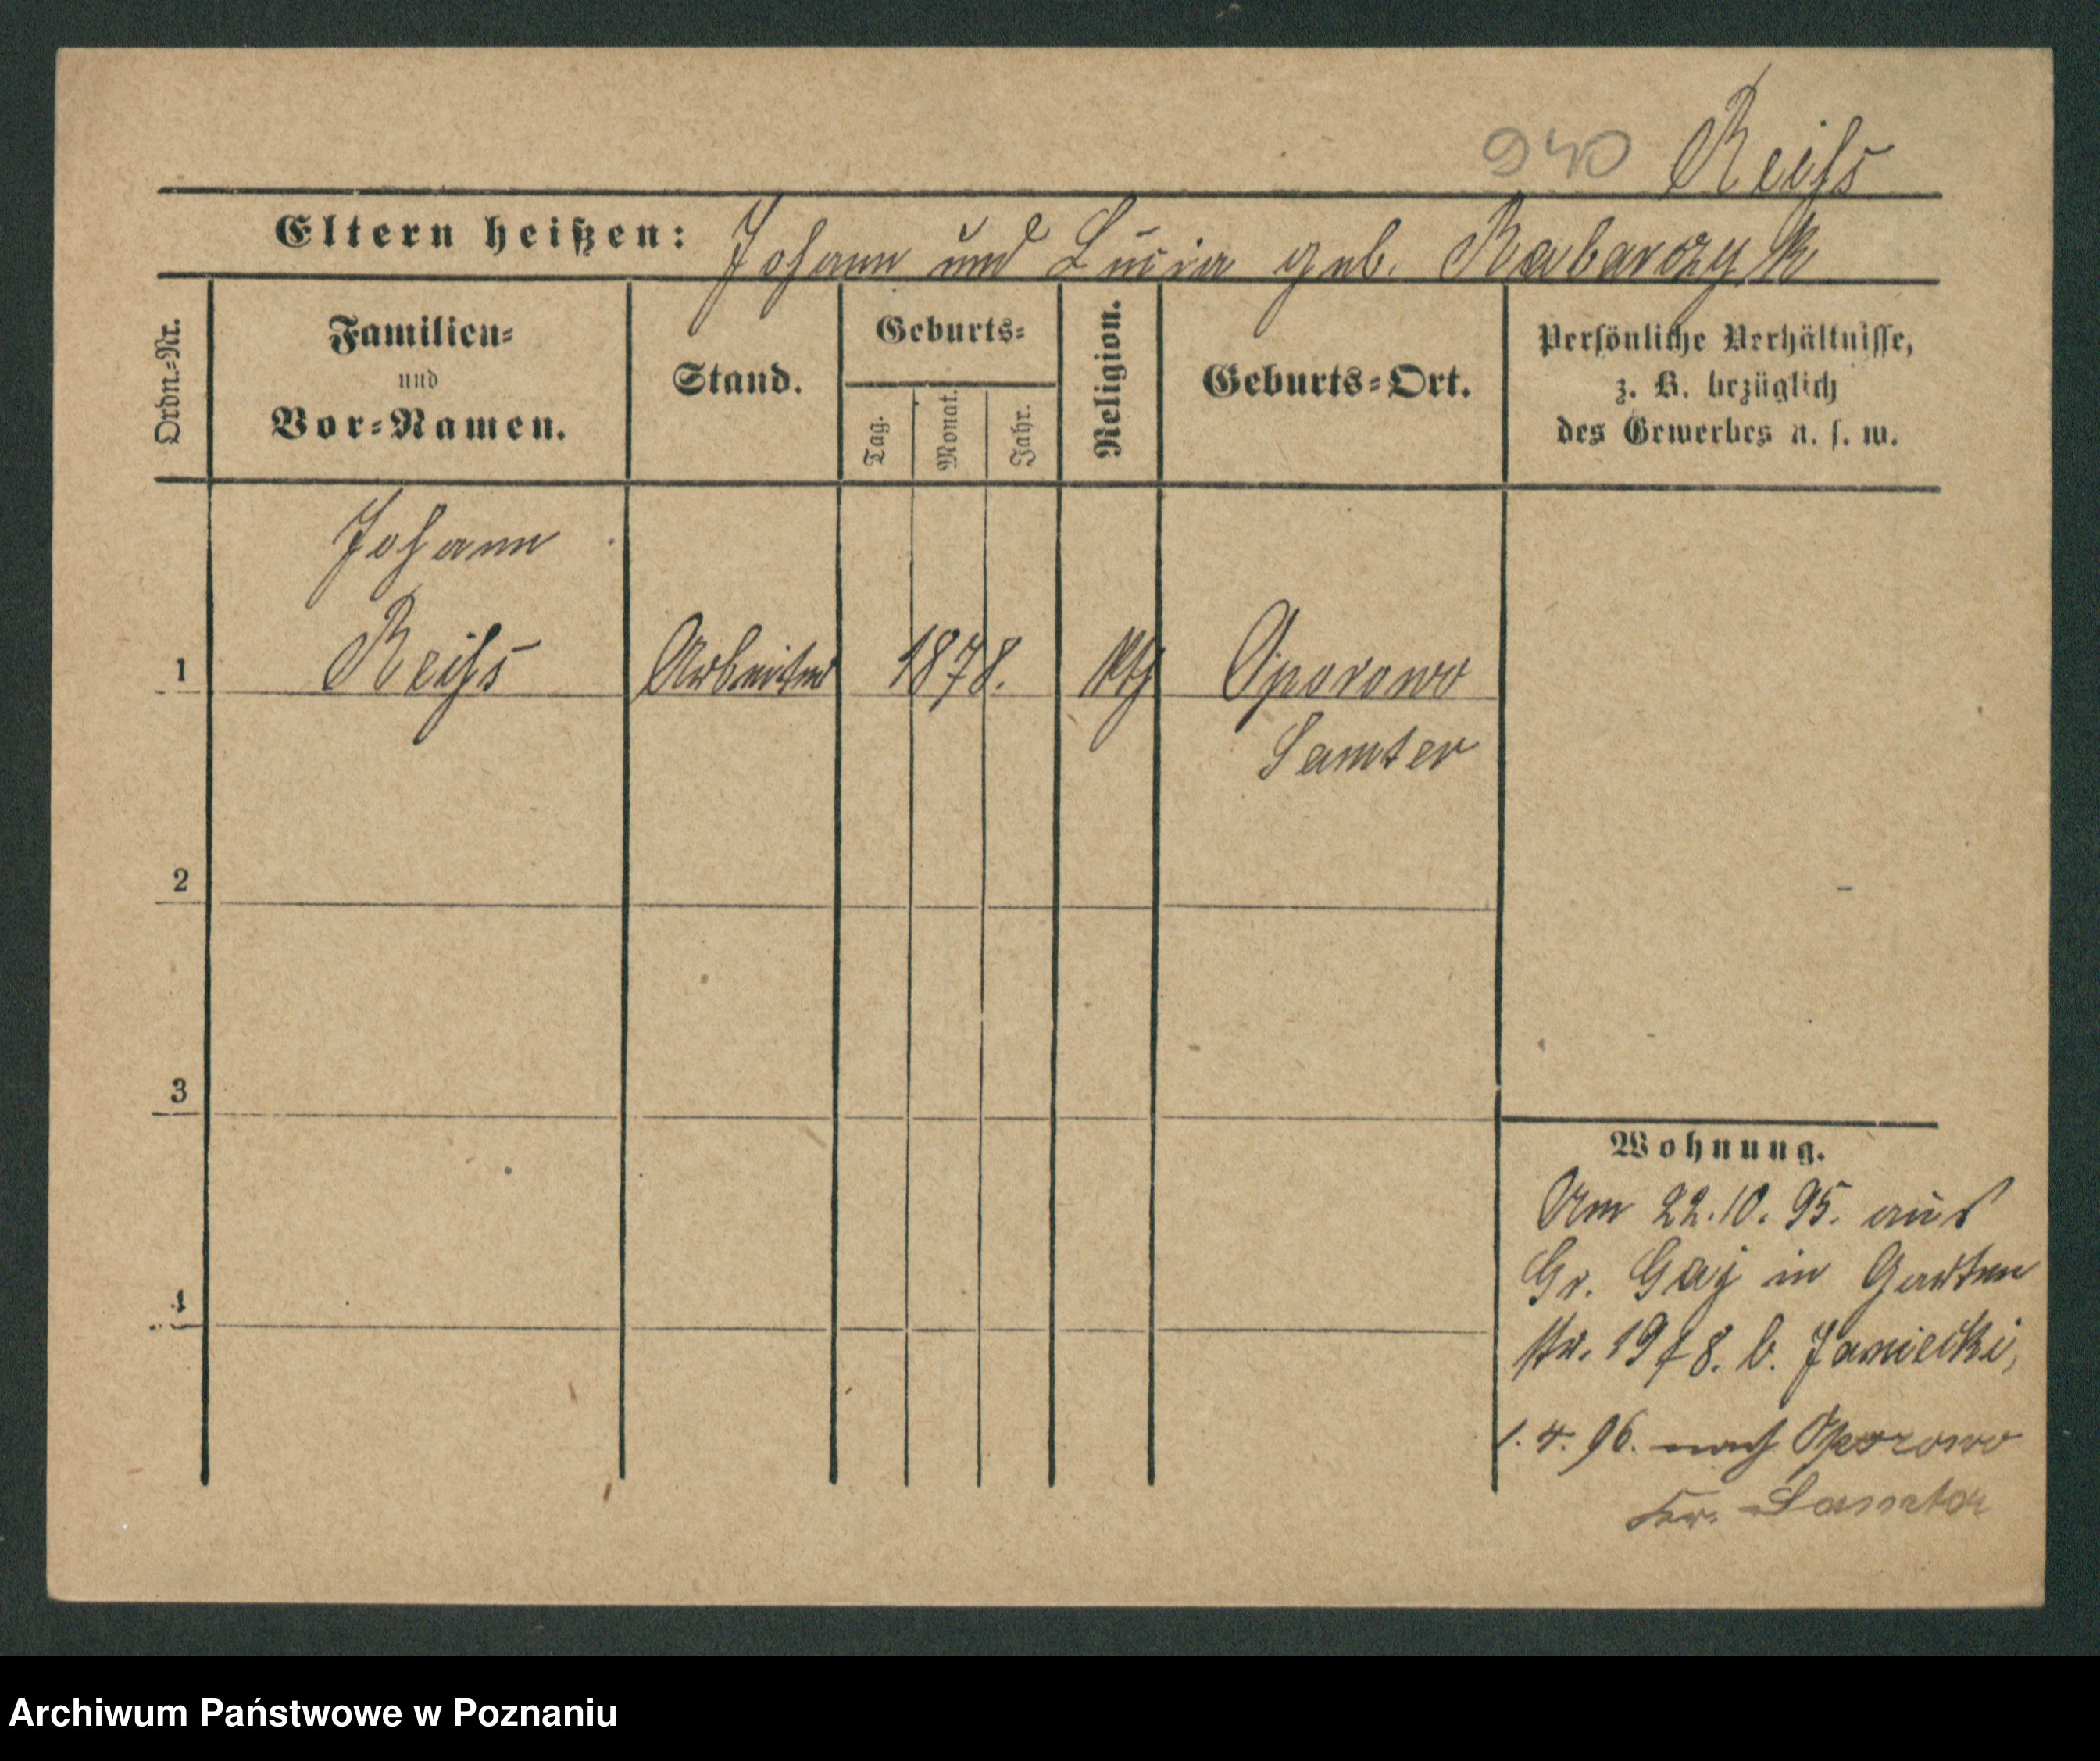 940 Reiſs
Eltern heißen: Johann und Lucia geb. Rabarczyk
Ordn.=Nr.
Familien=
und
Vor=Namen.
Stand.
Geburts=
Tag.
Monat.
Jahr.
Religion.
Geburts=Ort.
Perſönliche Verhältniſſe,
z. B. bezüglich
des Gewerbes u. ſ. w.
Johann
1 Reiſs Arbeiter 1878. kth Oporowo
Samter
2
3
4
Wohnung.
Am 22.10.95. aus
Gr. Gaj in Garten
str. 19 f 8. b. Janiecki,
1.4.96. nach Oporowo
Kr. Samter
Archiwum Państwowe w Poznaniu